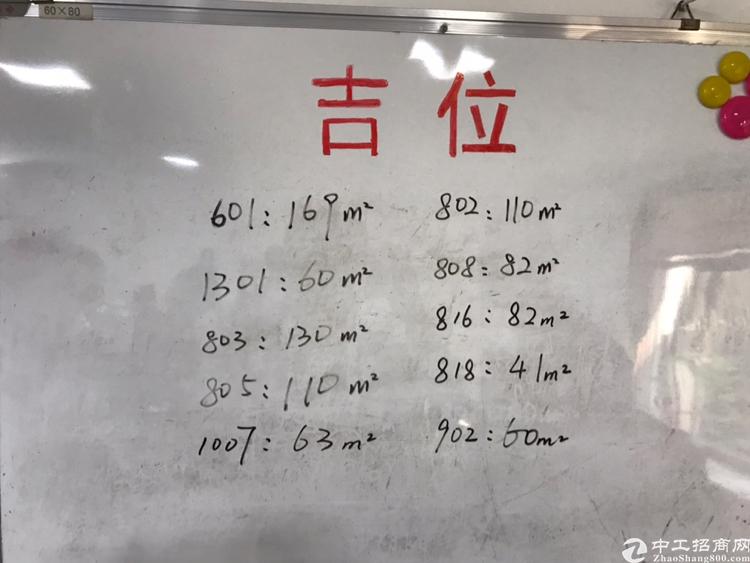 60×80
吉位
601:169m²
802:110m²
1301:60m²
808:82m²
803:130m²
816:82m²
805:110m²
818:41m²
1007:63m²
902:60m²
中工招商网
ZhaoShang800.com